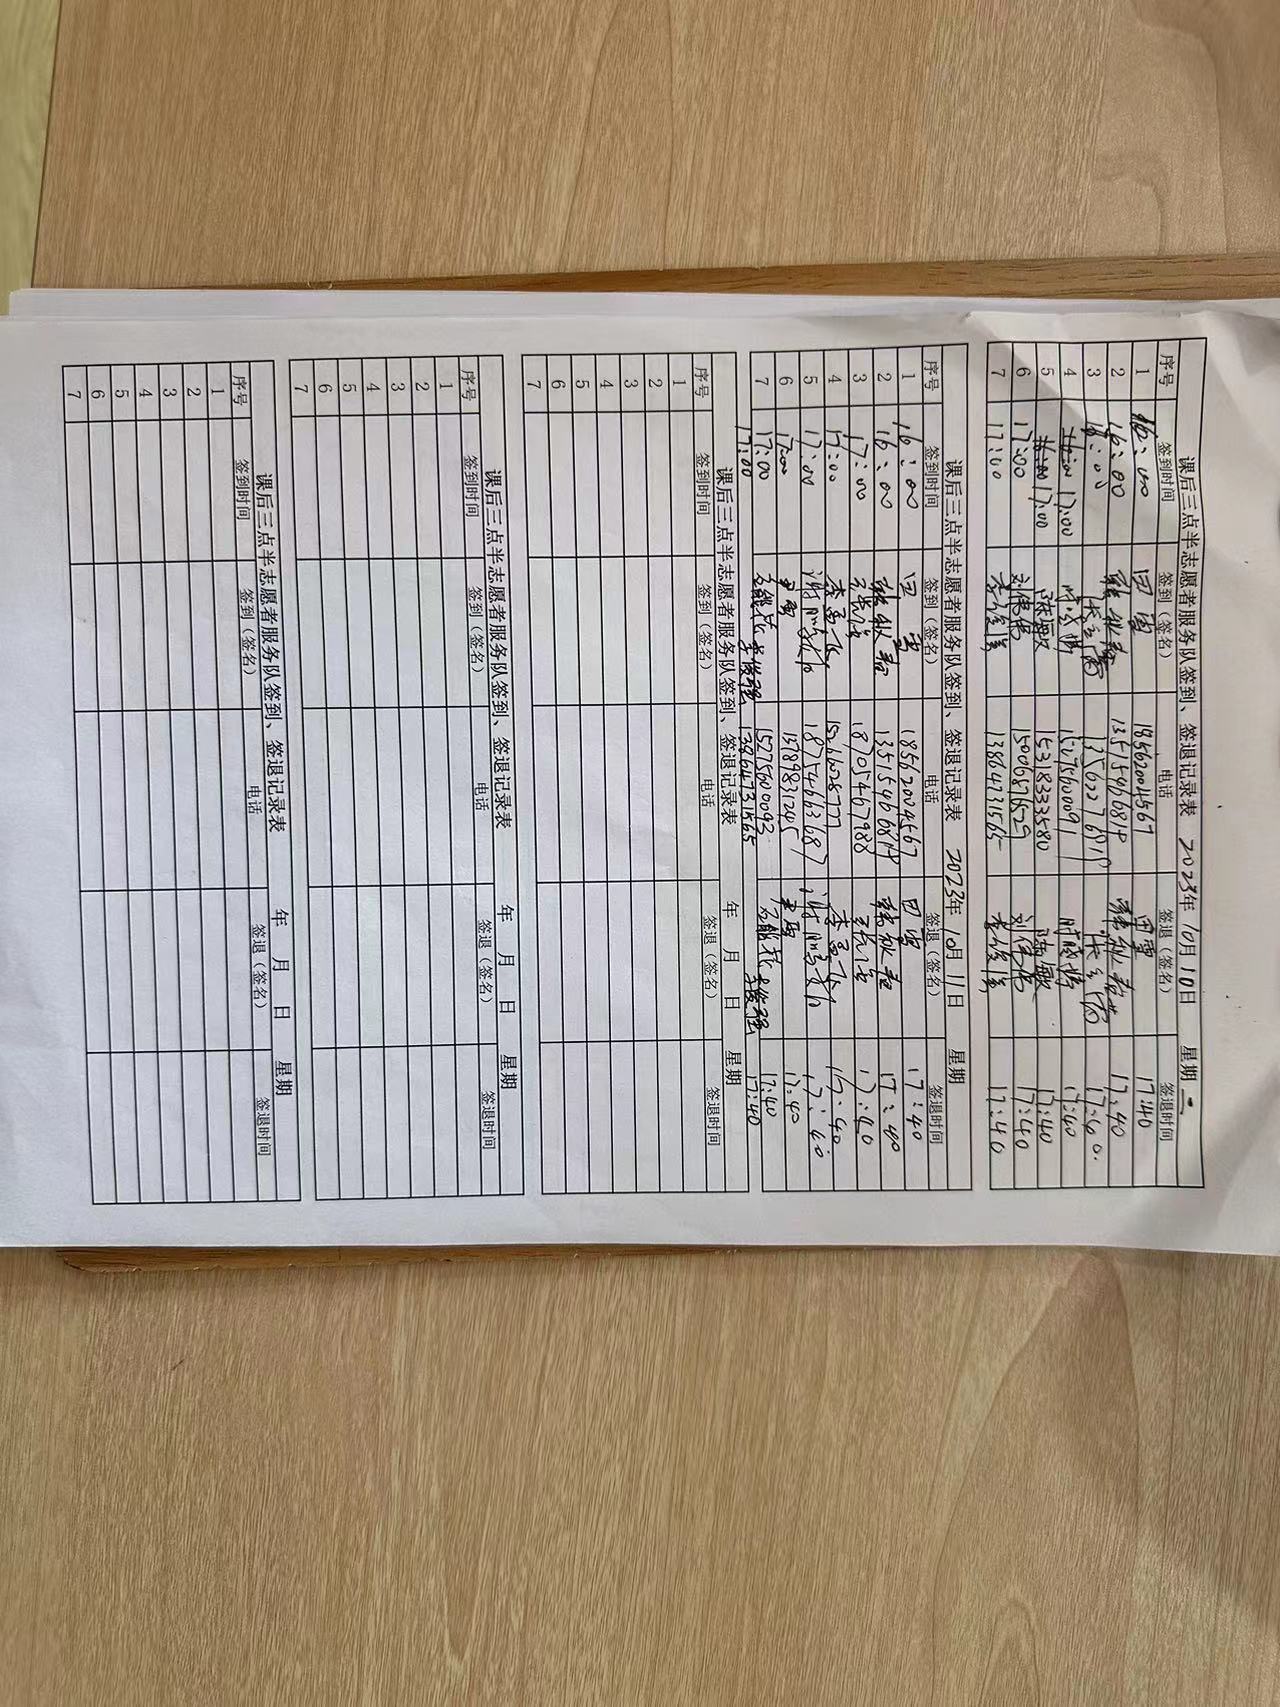 课后三点半志愿者服务队签到、签退记录表 2023年 10月 10日 星期二
序号 签到时间 签到（签名） 电话 签退（签名） 签退时间
1 16:00 田雪 18562004567 田雪 17:40
2 16:00 13515466814 17:40
3 16:00 17:40.
4 16:00 17:00 15275600091 17:40
5 16:00 17:00 陈敏 15318333580 陈敏 17:40
6 17:00 刘伟伟 15006876529 刘伟伟 17:40
7 17:00 李俊强 13864731565 李俊强 17:40
课后三点半志愿者服务队签到、签退记录表 2023年 10月 11日 星期
序号 签到时间 签到（签名） 电话 签退（签名） 签退时间
1 16:00 田雪 18562004567 田雪 17:40
2 16:00 13515466814 17:40
3 17:00 18705467988 17:40
4 17:00 李孟飞 李孟飞 17:40
5 17:00 18754663687 17:40
6 17:00 尹雪 13789831245 尹雪 17:40
7 17:00 15275600093 17:40
17:00 李俊强 13864731565 李俊强 17:40
课后三点半志愿者服务队签到、签退记录表 年 月 日 星期
序号 签到时间 签到（签名） 电话 签退（签名） 签退时间
1
2
3
4
5
6
7
课后三点半志愿者服务队签到、签退记录表 年 月 日 星期
序号 签到时间 签到（签名） 电话 签退（签名） 签退时间
1
2
3
4
5
6
7
课后三点半志愿者服务队签到、签退记录表 年 月 日 星期
序号 签到时间 签到（签名） 电话 签退（签名） 签退时间
1
2
3
4
5
6
7